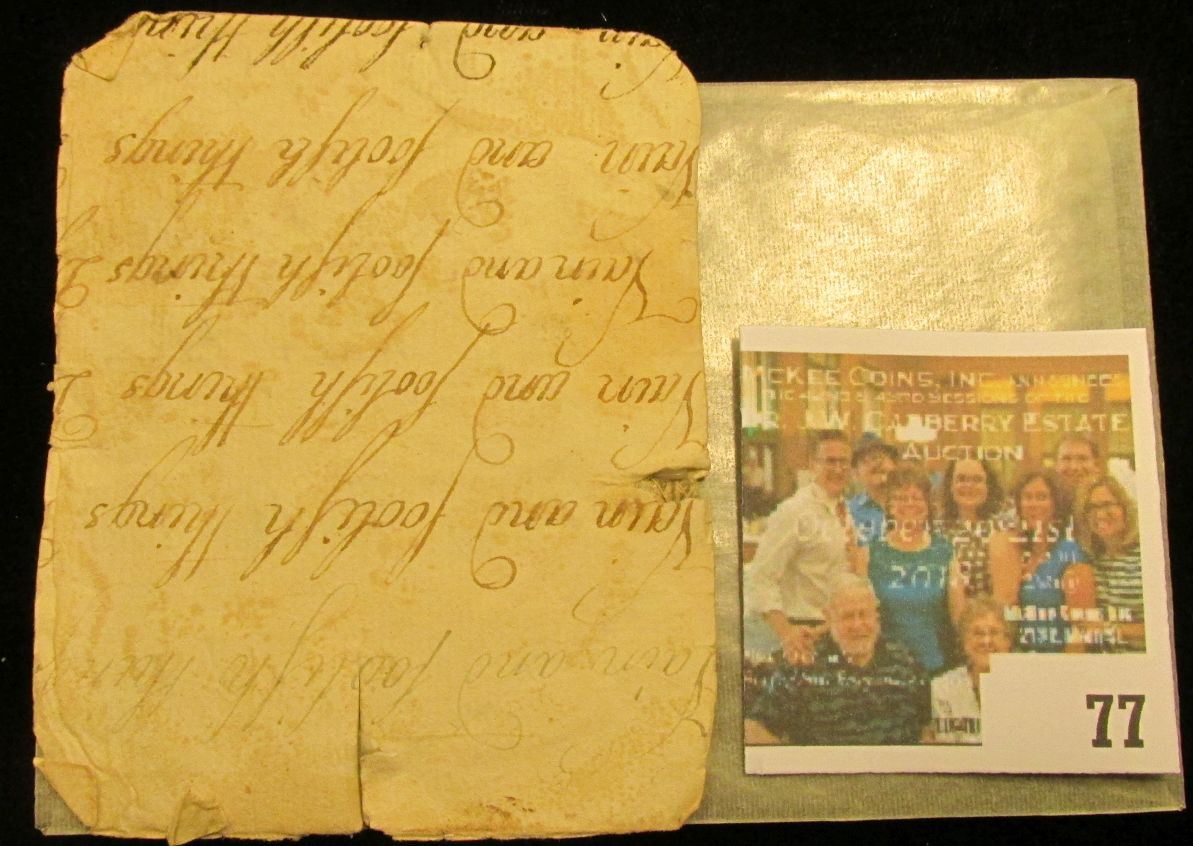 Vain and fooliſh things
Vain and fooliſh things
Vain and fooliſh things
Vain and fooliſh things
Vain and fooliſh things
Vain and fooliſh things
McKee Coins, Inc. announces
Sessions of the
J.W. Carberry Estate
Auction
October 20-21st
2018
77